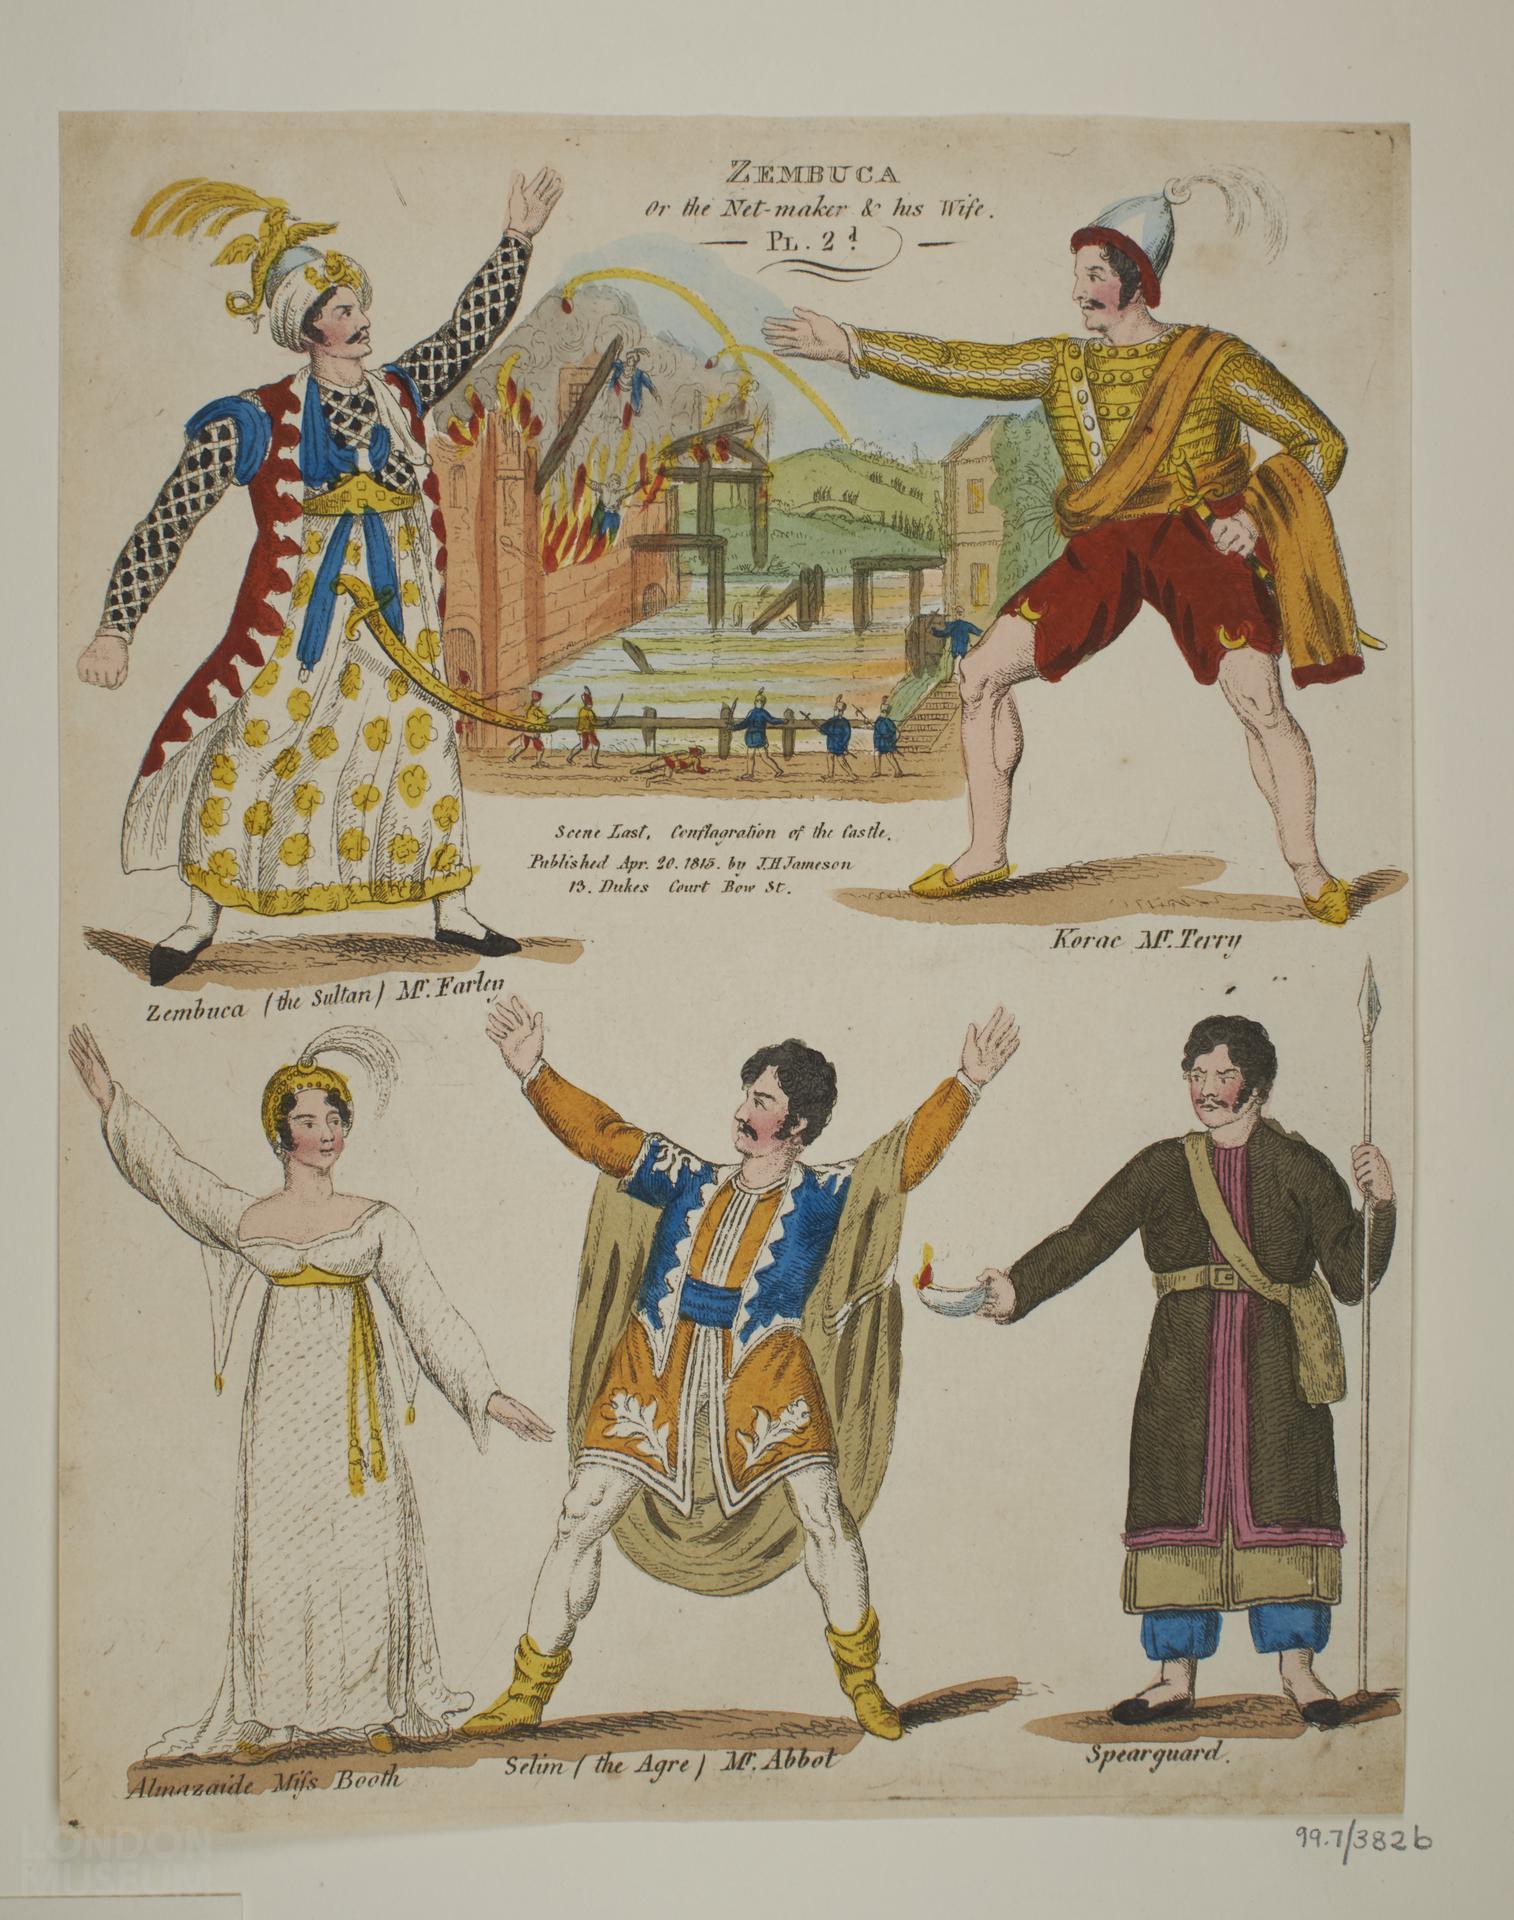 ZEMBUCA
or the Net-maker & his Wife.
PL. 2d.
Scene Last, Conflagration of the Castle.
Published Apr. 20. 1815. by J.H Jameson
13. Dukes Court Bow St.
Zembuca (the Sultan) Mr. Farley
Korac Mr. Terry
Almazaide Miſs Booth
Selim (the Agre) Mr. Abbot
Spearguard.
99.7/382b
LONDON
MUSEUM